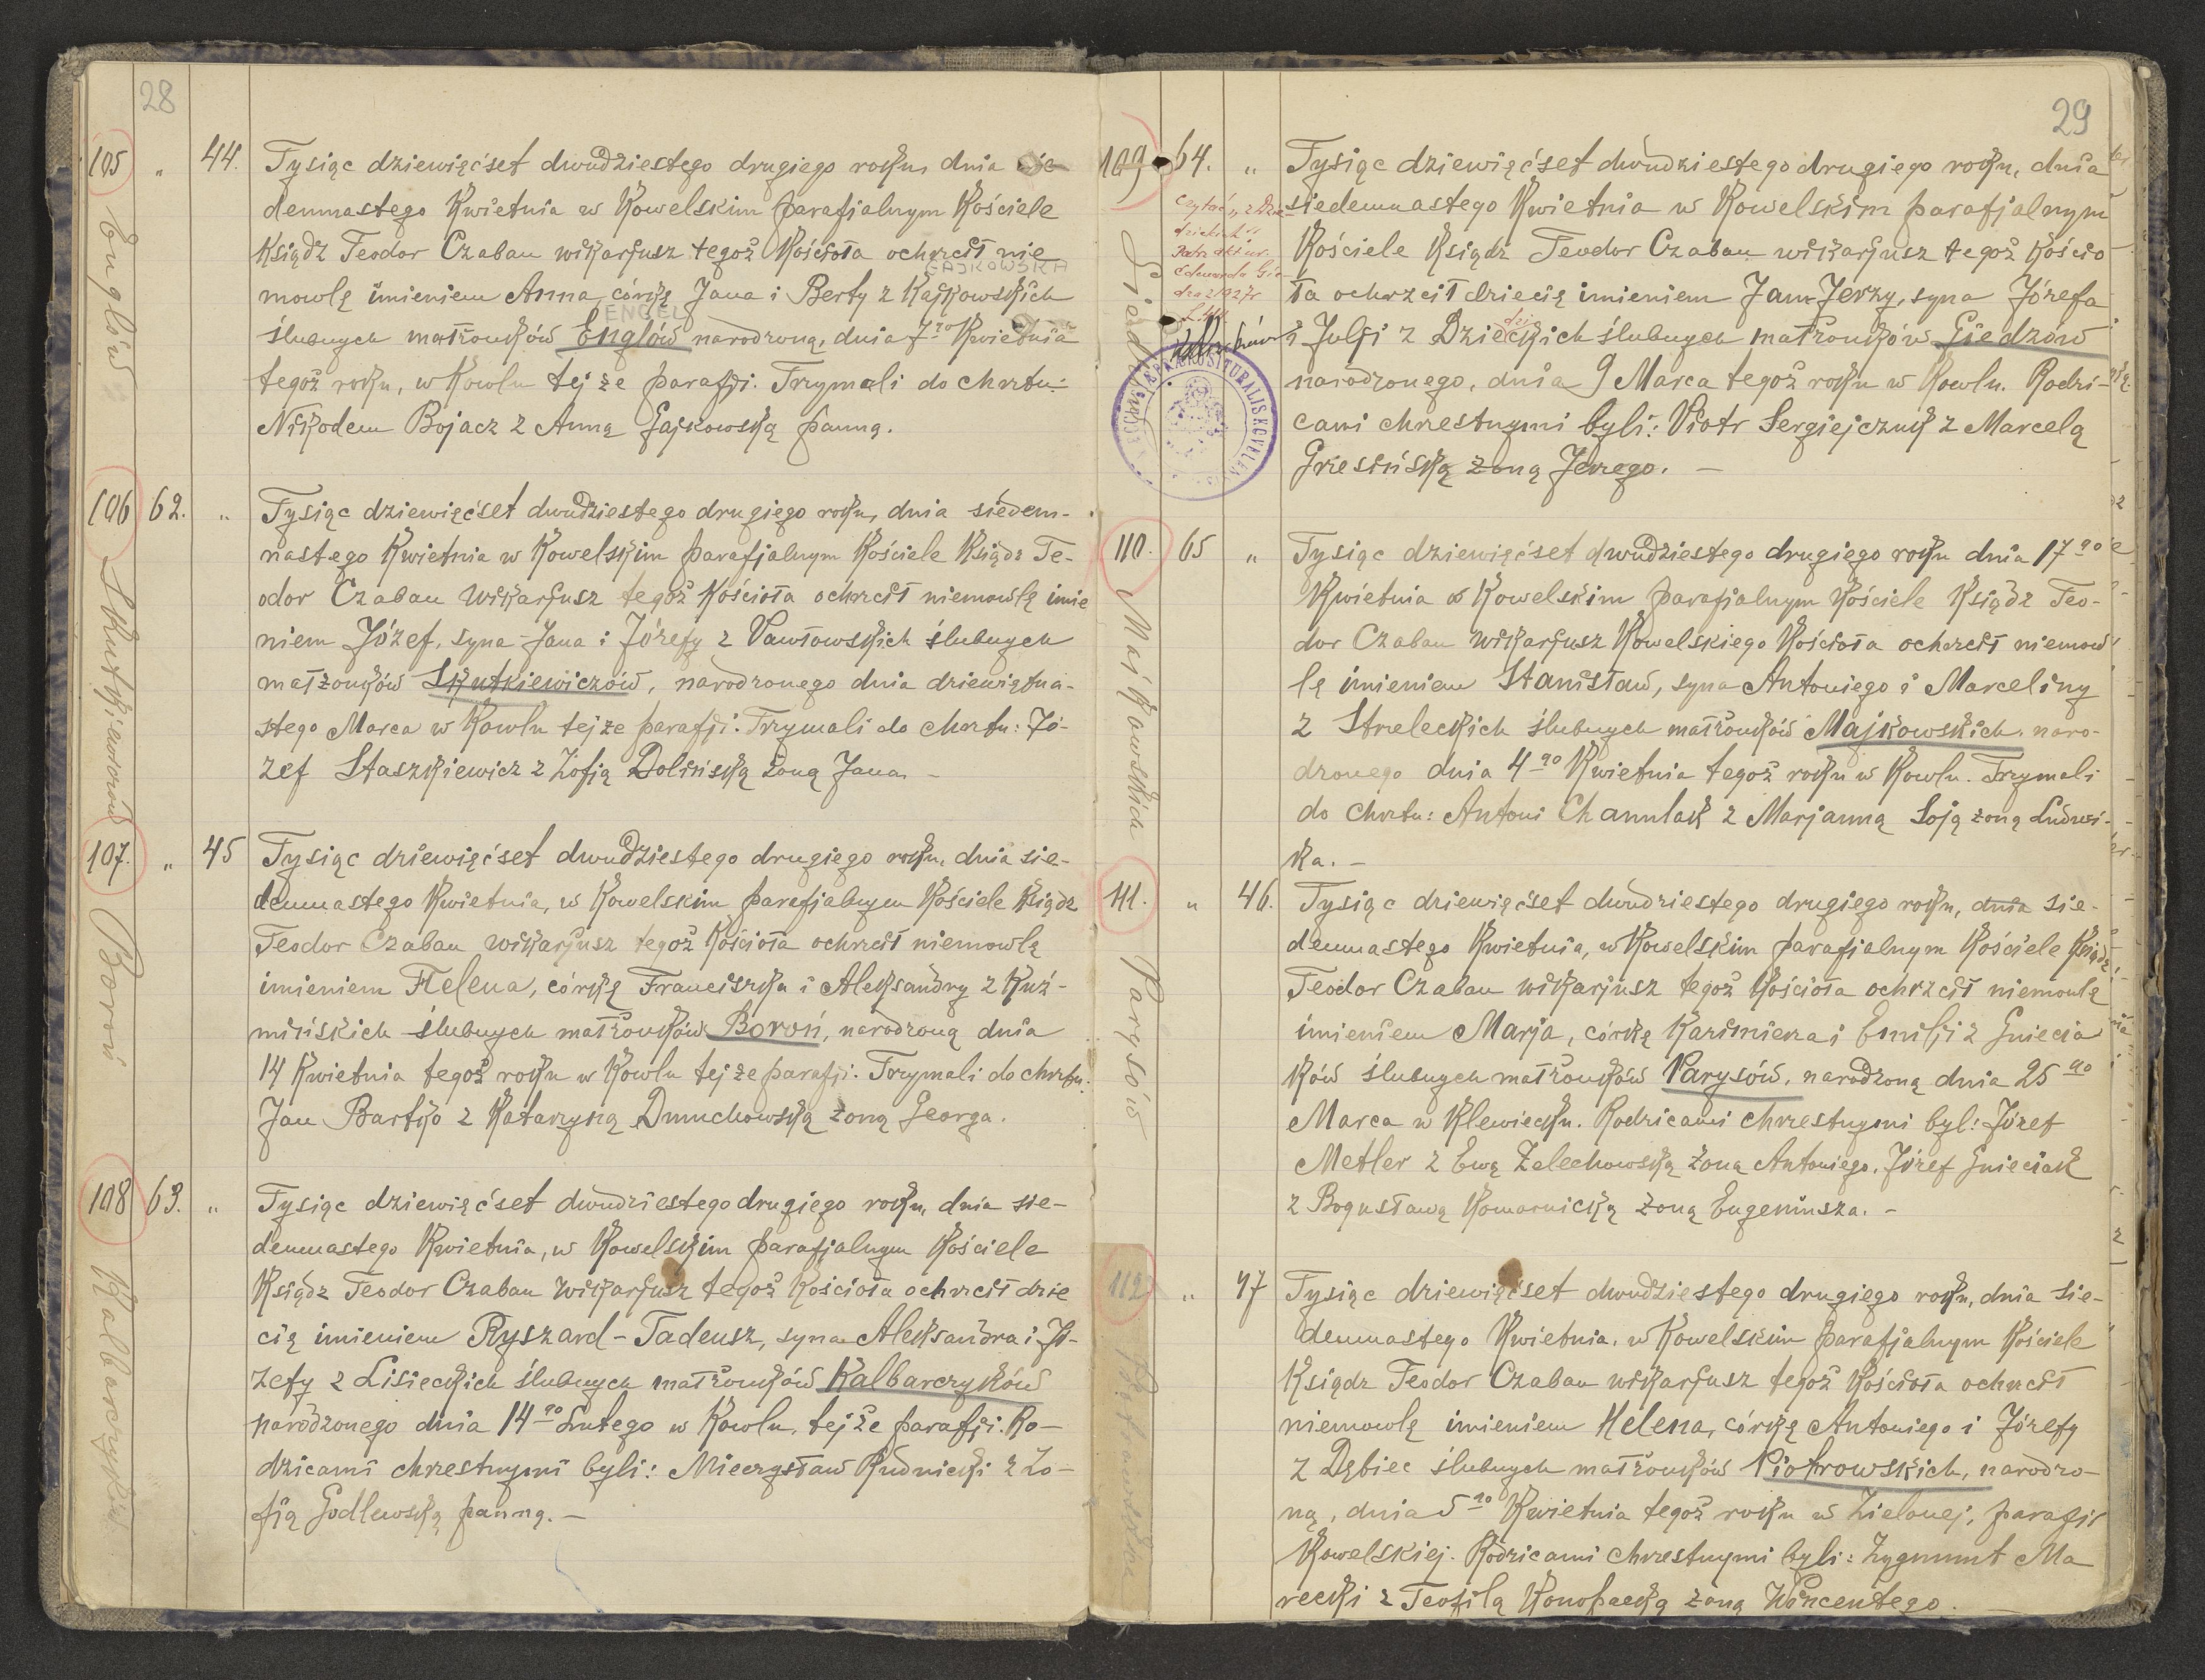 28
105 " 44. Tysiąc dziewięćset dwudziestego drugiego roku, dnia sie
demnastego Kwietnia w Kowelskim parafjalnym Kościele
Ksiądz Teodor Czaban wikarjusz tegoż Kościoła ochrzcił nie
GAJKOWSKA
mowlę imieniem Anna, córkę Jana i Berty z Kajkowskich
ENGEL
ślubnych małżonków Englów narodzoną, dnia 7go Kwietnia
tegoż roku, w Kowlu tej że parafji. Trzymali do chrztu:
Nikodem Bojacz z Anną Gajkowską panną.
Englów
106 62. " Tysiąc dziewięćset dwudziestego drugiego roku, dnia siedem-
nastego Kwietnia w Kowelskim parafjalnym Kościele Ksiądz Te-
odor Czaban wikarjusz tegoż Kościoła ochrzcił niemowlę imie
niem Józef, syna Jana i Józefy z Pawłowskich ślubnych
małżonków Skutkiewiczów, narodzonego dnia dziewiętna-
stego Marca w Kowlu tej że parafji. Trzymali do chrztu: Jó-
zef Staszkiewicz z Zofją Dolińską żoną Jana. -
Skutkiewiczów
107. " 45 Tysiąc dziewięćset dwudziestego drugiego roku, dnia sie-
demnastego Kwietnia, w Kowelskim parafjalnym Kościele Ksiądz
Teodor Czaban wikarjusz tegoż Kościoła ochrzcił niemowlę
imieniem Helena, córkę Franciszka i Aleksandry z Kuź-
mińskich ślubnych małżonków Boroń, narodzoną dnia
14 Kwietnia tegoż roku w Kowlu tej że parafji. Trzymali do chrztu:
Jan Bartko z Katarzyną Dmuchowską żoną Georga.
Boroń
108 63. " Tysiąc dziewięćset dwudziestego drugiego roku, dnia sie-
demnastego Kwietnia, w Kowelskim parafjalnym Kościele
Ksiądz Teodor Czaban wikarjusz tegoż Kościoła ochrzcił dzie
cię imieniem Ryszard-Tadeusz, syna Aleksandra i Jó-
zefy z Lisieckich ślubnych małżonków Kalbarczyków
narodzonego dnia 14go Lutego w Kowlu, tej że parafji. Ro-
dzicami chrzestnymi byli: Mieczysław Rudnicki z Zo-
fią Godlewską panną. -
Kalbarczyków
29
109 64. " Tysiąc dziewięćset dwudziestego drugiego roku, dnia
siedemnastego Kwietnia w Kowelskim parafjalnym
Kościele Ksiądz Teodor Czaban wikarjusz tegoż Kościo
ła ochrzcił dziecię imieniem Jan-Jerzy, syna Józefa
i Julji z Dzieckich ślubnych małżonków Giedzów
narodzonego, dnia 9 Marca tegoż roku w Kowlu. Rodzi-
cami chrzestnymi byli: Piotr Sergiejczuk z Marcelą
Grzesińską żoną Jerzego. -
110. 65 " Tysiąc dziewięćset dwudziestego drugiego roku dnia 17go
Kwietnia w Kowelskim parafjalnym Kościele Ksiądz Teo-
dor Czaban wikarjusz Kowelskiego Kościoła ochrzcił niemow
lę imieniem Stanisław, syna Antoniego i Marceliny
z Streleckich ślubnych małżonków Majkowskich, naro-
dzonego dnia 4go Kwietnia tegoż roku w Kowlu. Trzymali
do chrztu: Antoni Channlak z Marjanną Soją żoną Ludwi-
ka. -
Majkowskich
111. " 46. Tysiąc dziewięćset dwudziestego drugiego roku, dnia sie-
demnastego Kwietnia, w Kowelskim parafjalnym Kościele Ksiądz
Teodor Czaban wikarjusz tegoż Kościoła ochrzcił niemowlę
imieniem Marja, córkę Kazimierza i Emilji z Gniecia
ków ślubnych małżonków Parysów, narodzoną dnia 25go
Marca w Klewiecku. Rodzicami chrzestnymi byl: Józef
Metler z Ewą Żelechowską żoną Antoniego. Józef Gnieciak
z Bogusławą Komarnicką żoną Eugeniusza. -
Parysów
112 " 47 Tysiąc dziewięćset dwudziestego drugiego roku, dnia sie-
demnastego Kwietnia, w Kowelskim parafjalnym Kościele
Ksiądz Teodor Czaban wikarjusz tegoż Kościoła ochrzcił
niemowlę imieniem Helena, córkę Antoniego i Józefy
z Dębiec ślubnych małżonków Piotrowskich, narodzo-
ną, dnia 5go Kwietnia tegoż roku w Zielonej, parafji
Kowelskiej. Rodzicami chrzestnymi byli: Zygmunt Ma
recki z Teofilą Konopacką żoną Wincentego. -
Piotrowskich